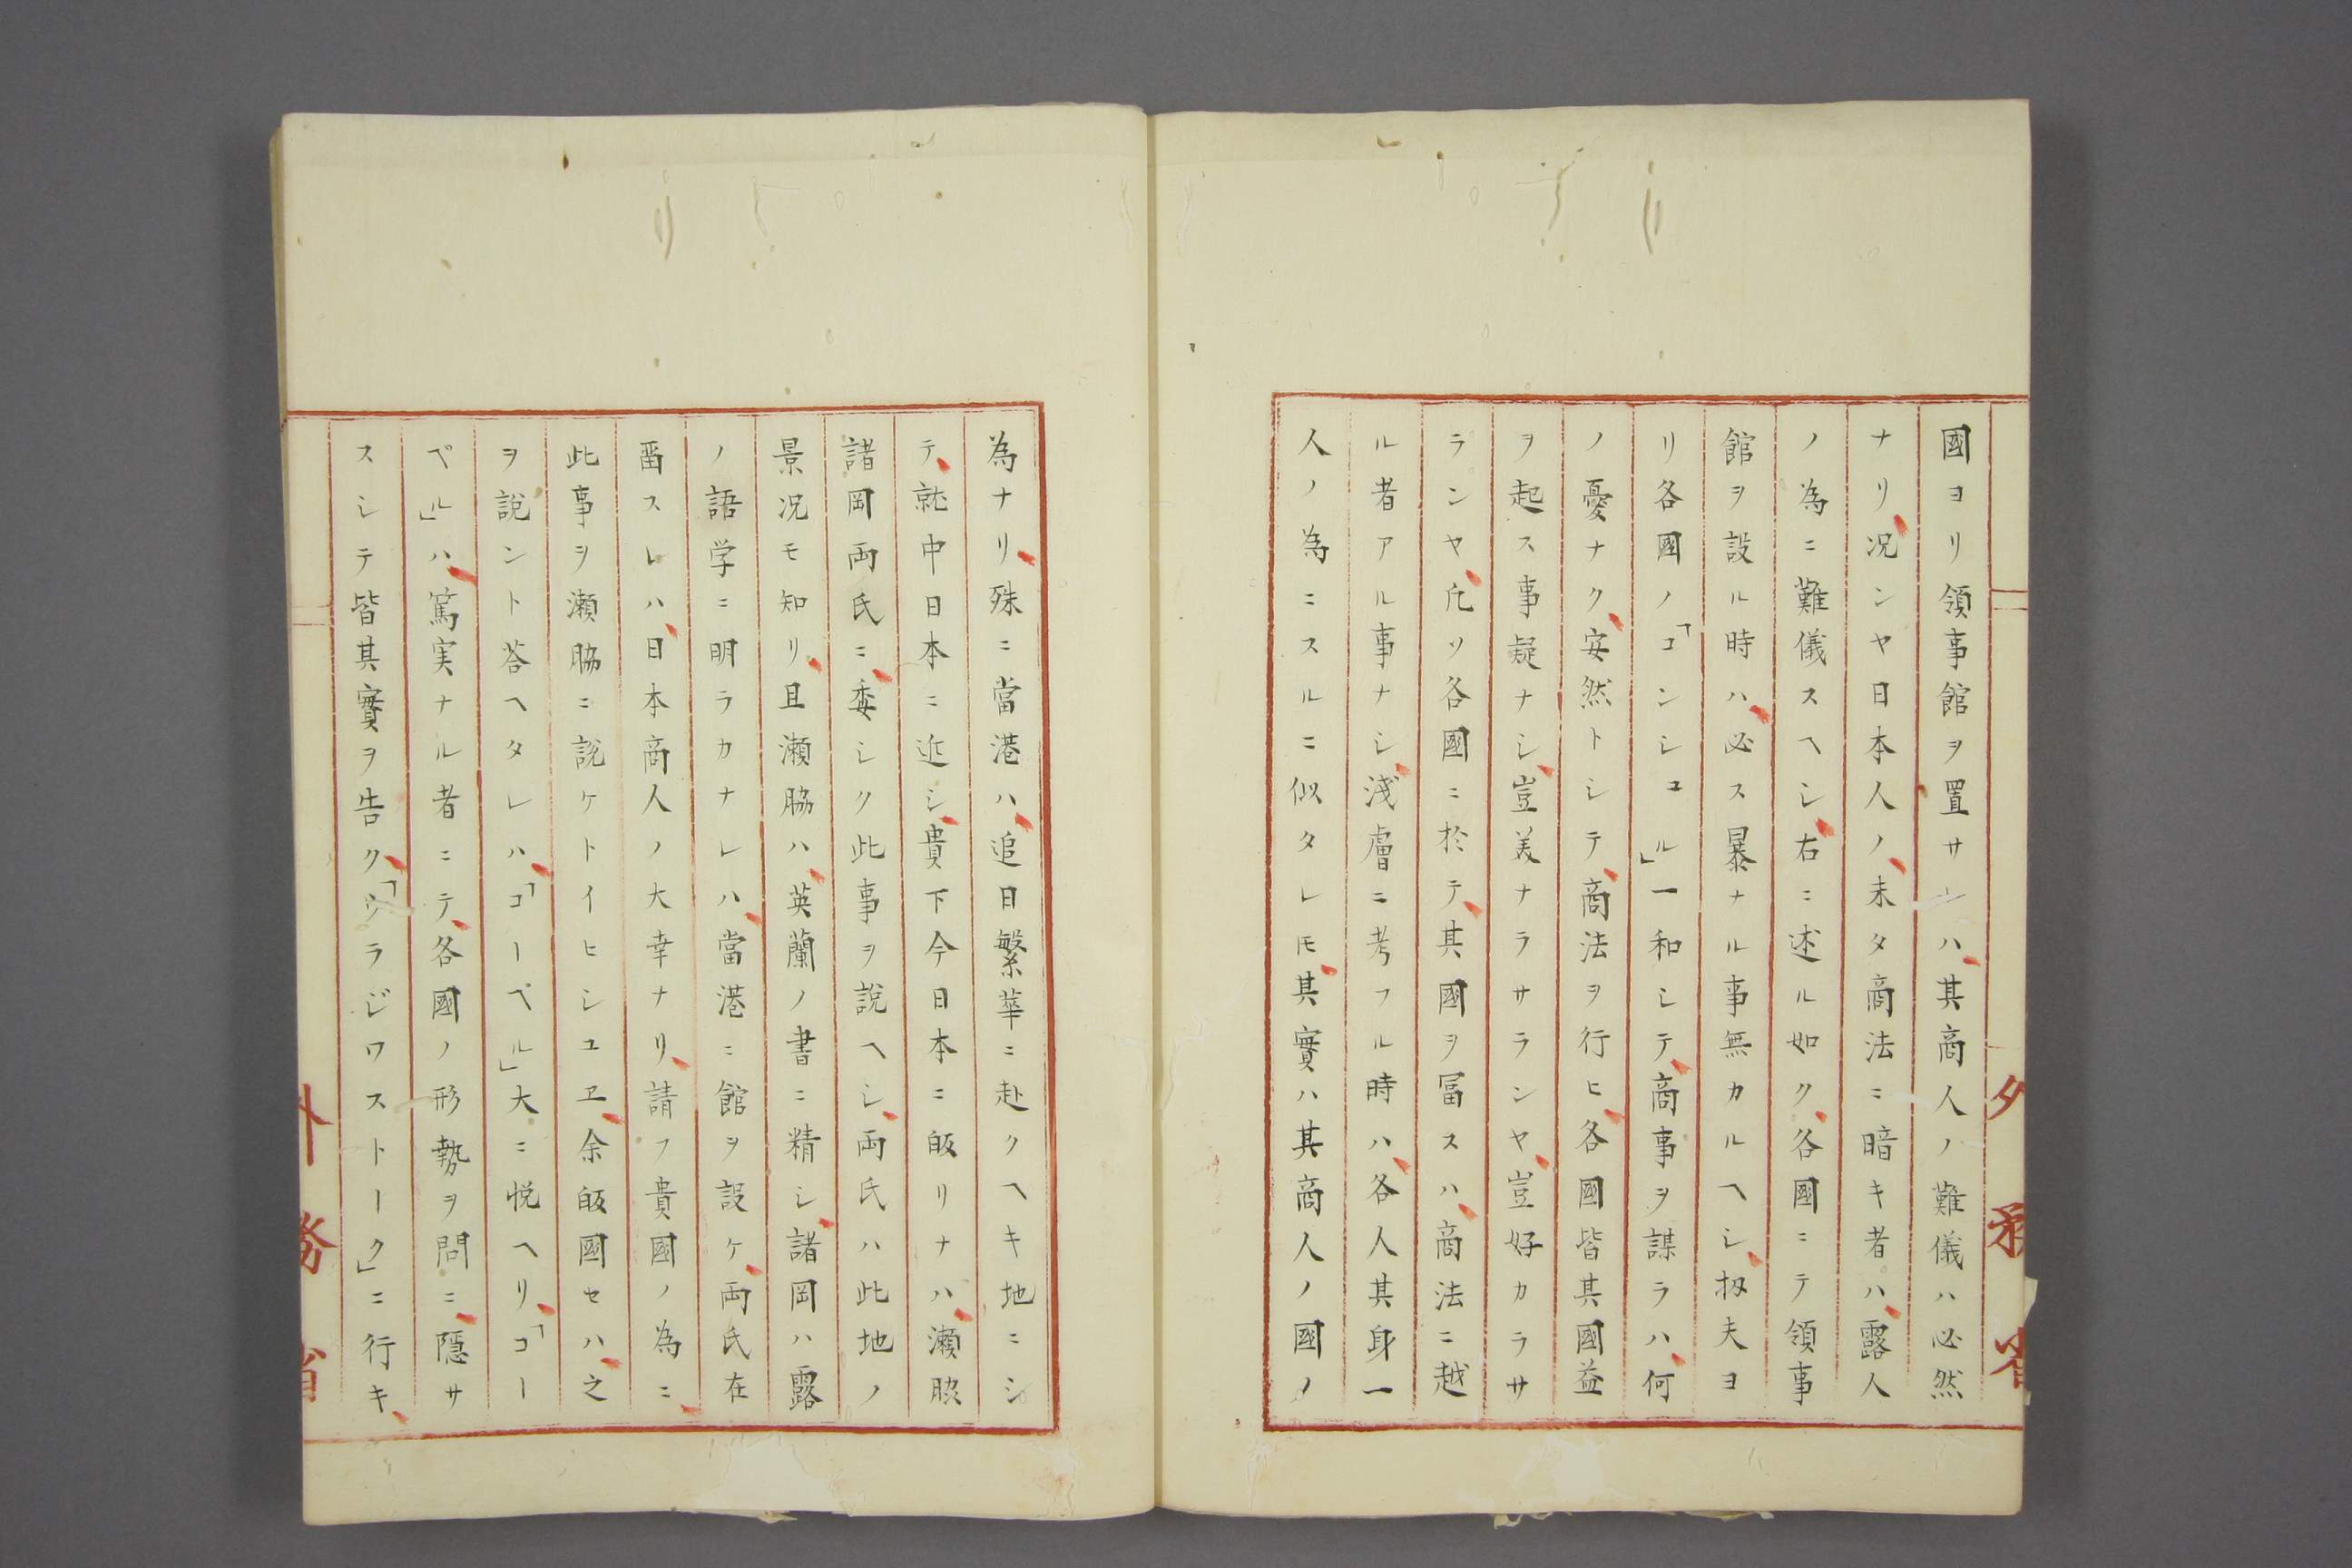 國ヨリ領事館ヲ置サレハ、其商人ノ難儀ハ必然
ナリ、况ンヤ日本人ノ、未タ商法ニ暗キ者ハ、露人
ノ為ニ難儀スヘシ、右ニ述ル如ク、各國ニテ領事
館ヲ設ル時ハ、必ス暴ナル事無カルヘシ、扨夫ヨ
リ各國ノ「コンシュル」一和シテ、商事ヲ謀ラハ、何
ノ憂ナク、安然トシテ、商法ヲ行ヒ、各國皆其國益
ヲ起ス事疑ナシ、豈美ナラサランヤ、豈好カラサ
ランヤ、凢ソ各國ニ於テ、其國ヲ冨スハ、商法ニ越
ル者アル事ナシ、淺膚ニ考フル時ハ、各人其身一
人ノ為ニスルニ似タレ𪜈、其實ハ其商人ノ國ノ
為ナリ、殊ニ當港ハ、追日繁華ニ赴クヘキ地ニシ
テ、就中日本ニ近シ、貴下今日本ニ皈リナハ、瀬脇
諸岡両氏ニ、委シク此事ヲ説ヘシ、両氏ハ此地ノ
景况モ知リ、且瀬脇ハ、英蘭ノ書ニ精シ、諸岡ハ露
ノ語学ニ明ラカナレハ、當港ニ館ヲ設ケ、両氏在
畱スレハ、日本商人ノ大幸ナリ、請フ貴國ノ為ニ、
此事ヲ瀬脇ニ説ケトイヒシユヱ、余皈國セハ、之
ヲ説ント荅ヘタレハ、「コーペル」大ニ悦ヘリ、「コー
ペル」ハ、篤実ナル者ニテ、各國ノ形勢ヲ問ニ、隱サ
スシテ皆其實ヲ告ク、「ウラジワストーク」ニ行キ、
外務省
外務省